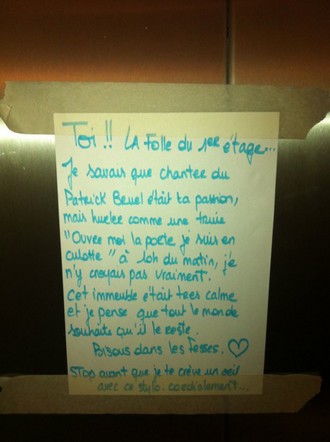 Toi !! LA Folle du 1er étage...
Je savais que chanter du
Patrick Bruel était ta passion,
mais hurler comme une truie
"Ouvre moi la porte je suis en
culotte" à 5h du matin, je
n'y croyais pas vraiment.
Cet immeuble était tres calme
et je pense que tout le monde
souhaite qu'il le reste.
Bisous dans les fesses. ♡
STOP avant que je te crève un oeil
avec ce stylo. cordialement...